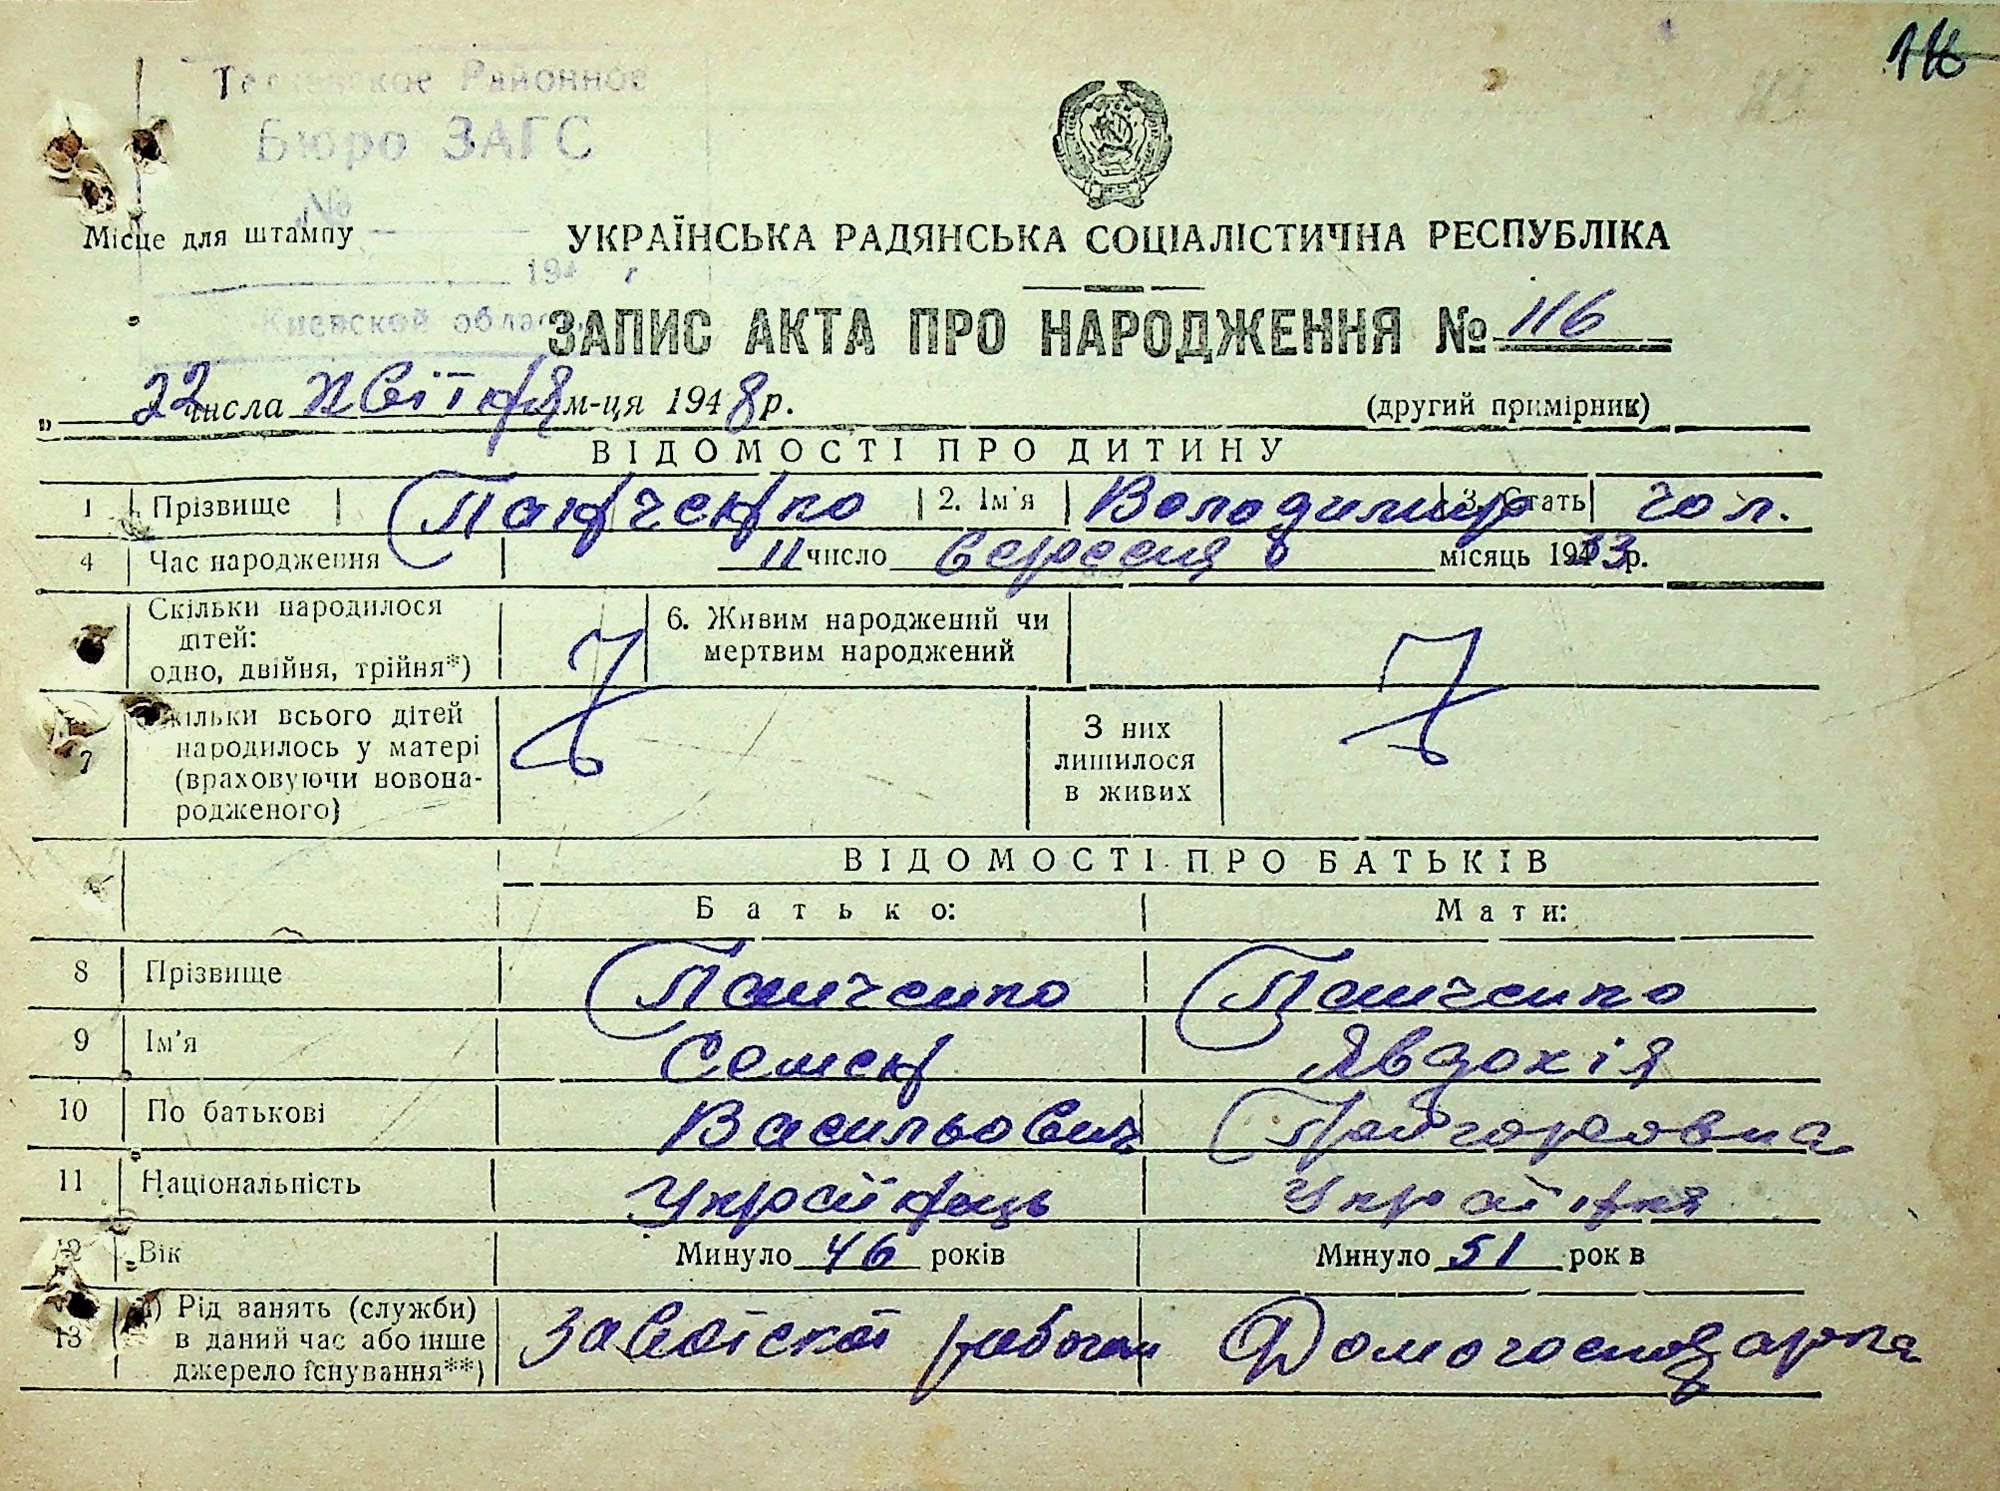 Районное
Бюро ЗАГС
№
Місце для штампу
194 г
Киевской област
УКРАЇНСЬКА РАДЯНСЬКА СОЦІАЛІСТИЧНА РЕСПУБЛІКА
ЗАПИС АКТА ПРО НАРОДЖЕННЯ № 116
„ 22 числа квітня м-ця 1948 р.
(другий примірник)
ВІДОМОСТІ ПРО ДИТИНУ
1 Прізвище Панченко 2. Ім'я Володимир 3. Стать чол.
4 Час народження 11 число вересня місяць 1933 р.
Скільки народилося
дітей:
одно, двійня, трійня*)
6. Живим народжений чи
мертвим народжений
7 Скільки всього дітей
народилось у матері
(враховуючи новона-
родженого)
З них
лишилося
в живих
ВІДОМОСТІ ПРО БАТЬКІВ
Батько: Мати:
8 Прізвище Панченко Панченко
9 Ім'я Семен Явдохія
10 По батькові Васильович
11 Національність Українець Українка
12 Вік Минуло 46 років Минуло 51 рок в
13 а) Рід занять (служби)
в даний час або інше
джерело існування**)
Домогосподарка